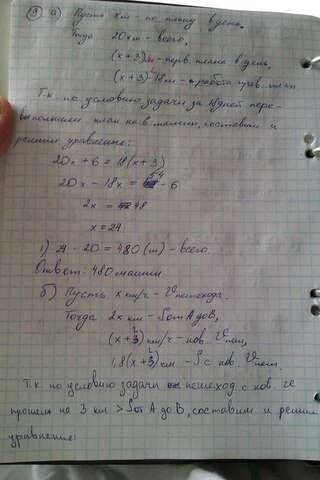 ③ а) Пусть x км - по плану в день.
Тогда 20x м - всего,
(x+3)м - перв. плана в день,
(x+3)·18 м - работа прев. план
Т.к. по условию задачи за 18 дней пере-
выполнили план на 6 машин, составим и
решим уравнение:
20x + 6 = 18(x+3)
20x - 18x = 54 - 6
2x = 48
x = 24
1) 24 · 20 = 480 (м) - всего.
Ответ: 480 машин.
б) Пусть x км/ч - V пешехода.
Тогда 2x км - S от A до B,
(x+2) км/ч - нов. V пеш,
1,8(x+2) км - S с нов. V пеш.
Т.к. по условию задачи пешеход с нов.
прошел на 3 км > S от A до B, составим и решим
уравнение: